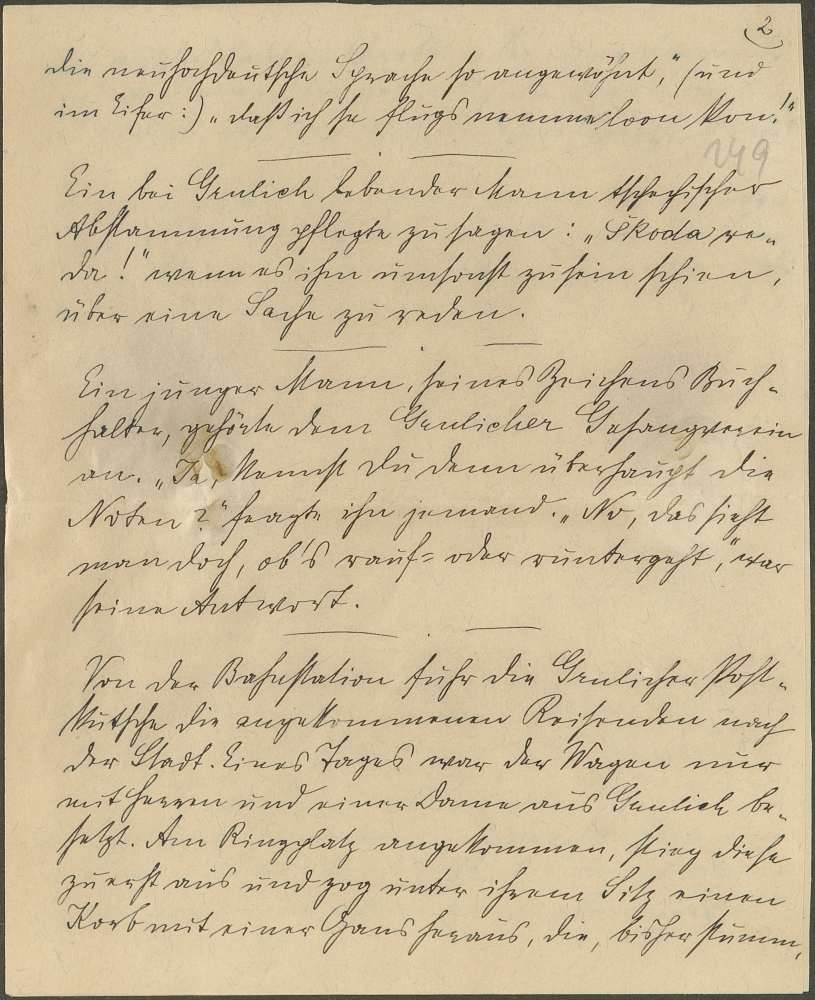 2
die neuhochdeutsche Sprache so angewöhnt,“ (und
im Eifer:) „daß ich se flugs nemme loon kon!“
249
Ein bei Grulich lebender Mann tschechischer
Abstammung pflegte zu sagen: „Škoda re-
da!“ wenn es ihm umsonst zu sein schien,
über eine Sache zu reden.
Ein junger Mann, seines Zeichens Buch-
halter, gehörte dem Grulicher Gesangverein
an. „Ja, kennst du denn überhaupt die
Noten?“ fragte ihn jemand. „No, das sieht
man doch, ob's rauf- oder runtergeht,“ war
seine Antwort.
Von der Bahnstation fuhr die Grulicher Post-
kutsche die angekommenen Reisenden nach
der Stadt. Eines Tages war der Wagen nur
mit Herren und einer Dame aus Grulich be-
setzt. Am Ringplatz angekommen, stieg diese
zuerst aus und zog unter ihrem Sitz einen
Korb mit einer Gans heraus, die, bisher stumm,